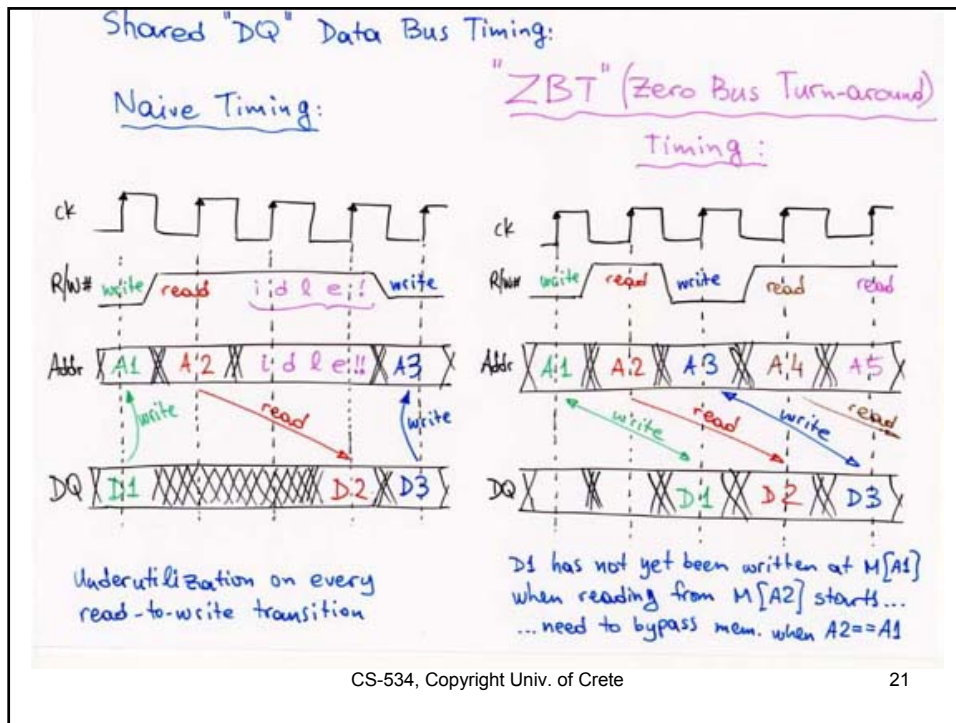 Shared "DQ" Data Bus Timing:
Naive Timing:
ck
R/W# write read idle!! write
Addr A1 A2 idle!! A3
write read write
DQ D1 D2 D3
Underutilization on every
read-to-write transition
"ZBT" (Zero Bus Turn-around)
Timing:
ck
R/W# write read write read read
Addr A1 A2 A3 A4 A5
write read write read
DQ D1 D2 D3
D1 has not yet been written at M[A1]
when reading from M[A2] starts...
...need to bypass mem. when A2==A1
CS-534, Copyright Univ. of Crete 21